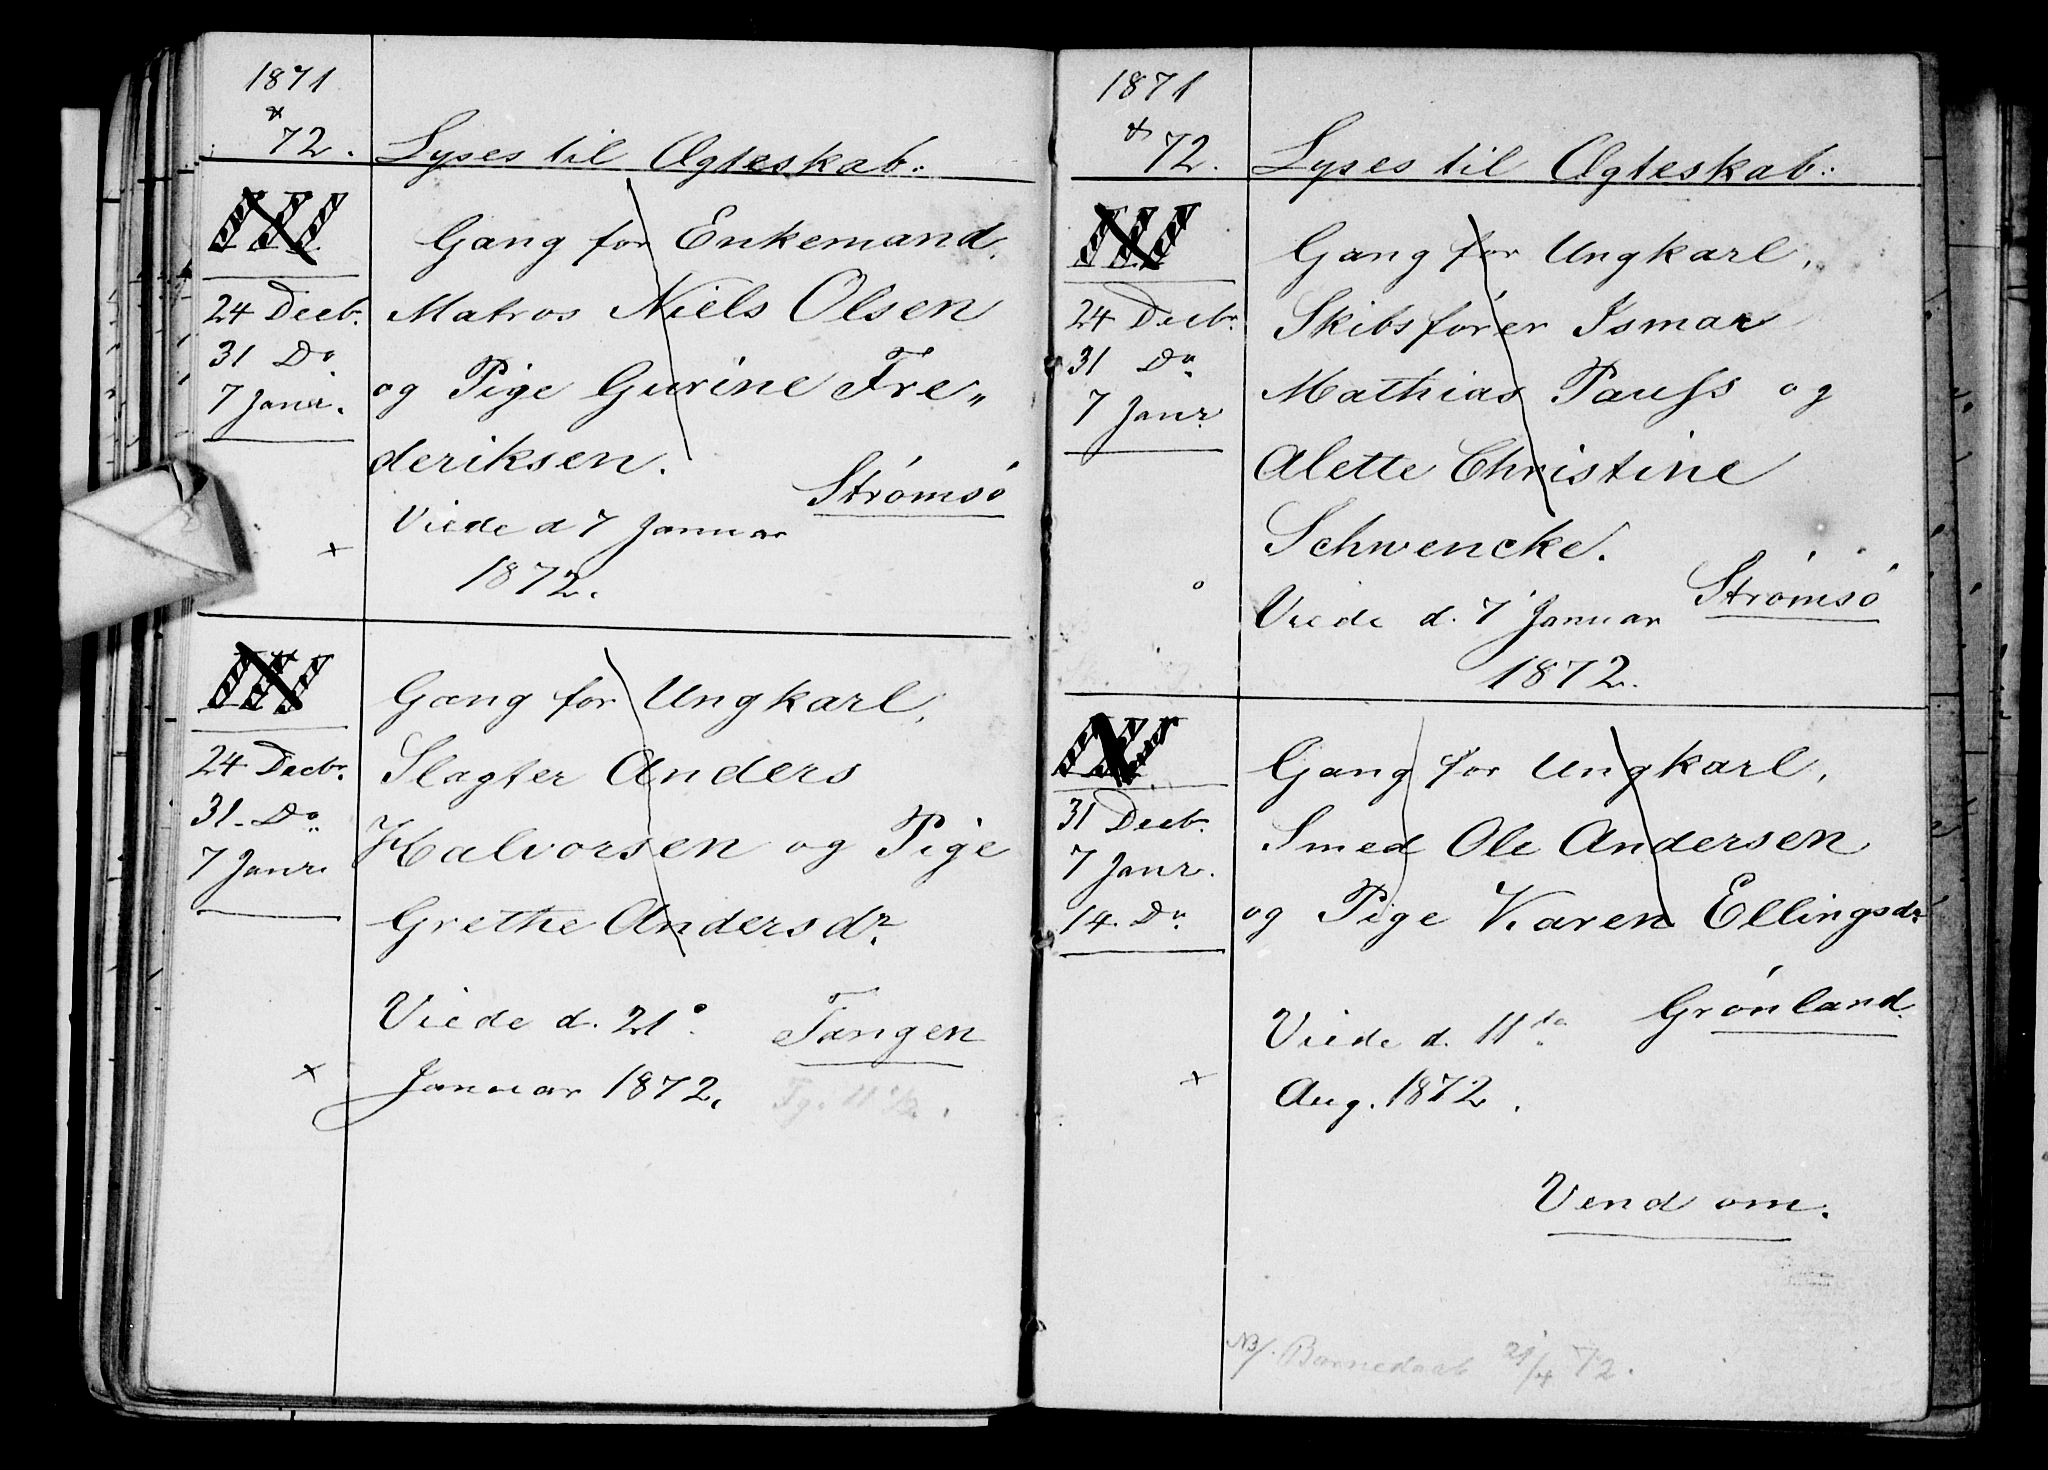 1871
&
72.
Lyses til Ægteskab.
III
Gang for Enkemand,
24 Decbr.
Matros Niels Olsen
31 Do
og Pige Gurine Fre„
7 Janr.
deriksen.
Strømsö
Viede d 7 Januar
+
1872.
III
Gang for Ungkarl,
24 Decbr.
Slagter Anders
31. Do
Halvorsen og Pige
7 Janr.
Grethe Andersdr.
Viede d. 21.
Tangen
+
Januar 1872.
1871
&
72.
Lyses til Ægteskab:
III
Gang for Ungkarl,
24 Decbr.
Skibsfører Ismar
31 Do
Mathias Pauss og
7 Janr.
Alette Christine
Schwencke.
Strømsö
Viede d. 7 Januar
1872.
III
Gang for Ungkarl,
31 Decbr.
Smed Ole Andersen
7 Janr.
og Pige Karen Ellingsdr.
14. Do
Grønland.
Viede d. 11te
+
Aug. 1872.
Vend om.
NB/. Barnedaab 21/4 72.